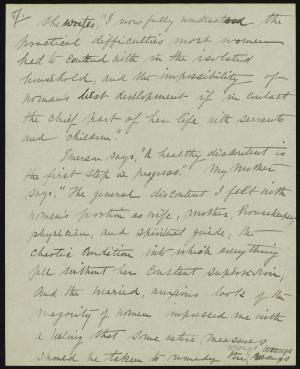 7/-
She writes, "I now fully understood the
practical difficulties most women
had to contend with in the isolated
household, and the impossibility of
woman's best development if in contact
the chief part of her life with servants
and children."
Emerson says, "A healthy discontent is
the first step in progress." My Mother
says, "The general discontent I felt with
women's portion as wife, mother, housekeeper,
physician, and spiritual guide, the
chaotic condition into which everything
fell without her constant supervision,
and the wearied, anxious look of the
majority of women impressed me with
a feeling that some active measures
should be taken to remedy the wrongs